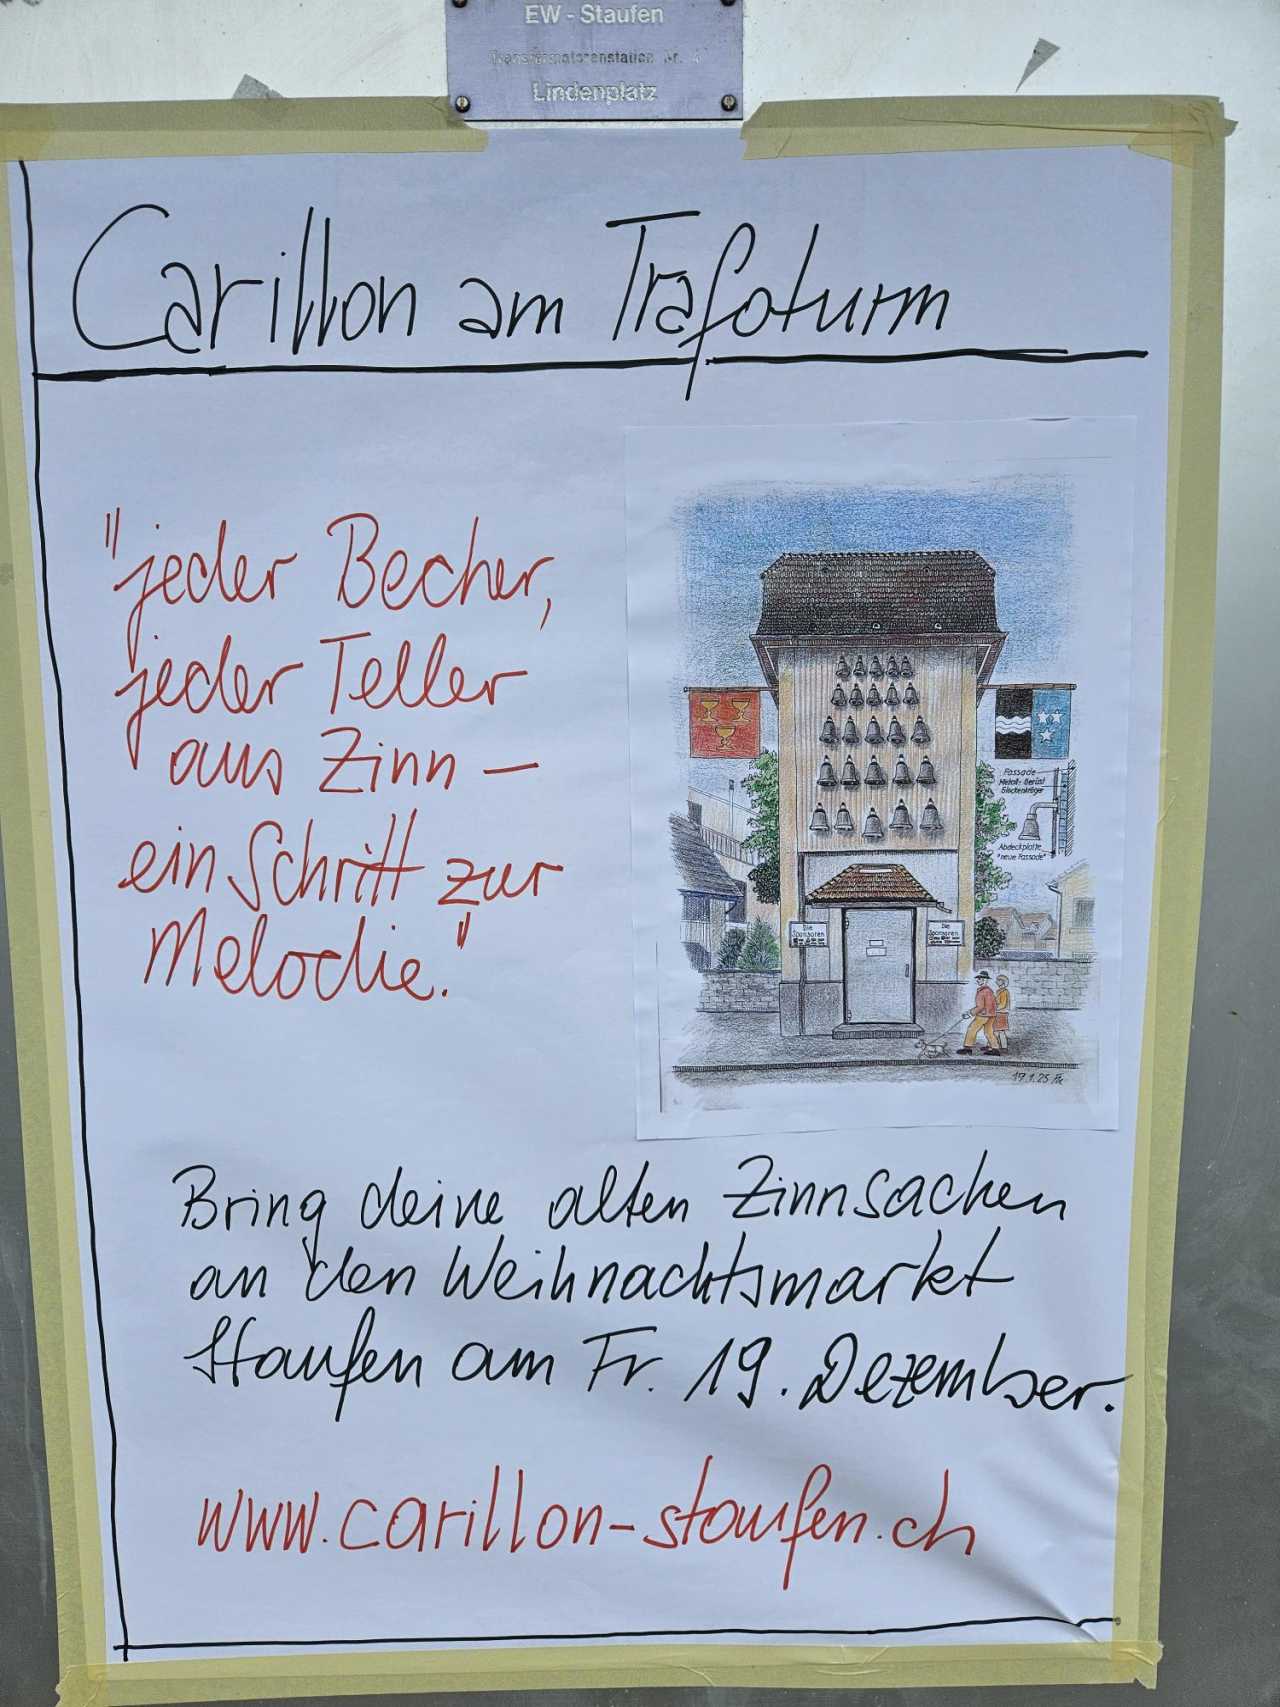 EW - Staufen
Transformatorenstation Nr. 4
Lindenplatz
Carillon am Trafoturm
"jeder Becher,
jeder Teller
aus Zinn –
ein Schritt zur
Melodie."
Fassade
Metall-Gerüst
Glockenträger
Abdeckplatte
"neue Fassade"
Die
Sponsoren
Die
Sponsoren
19.1.25
Bring deine alten Zinnsachen
an den Weihnachtsmarkt
Staufen am Fr. 19. Dezember.
www.carillon-staufen.ch